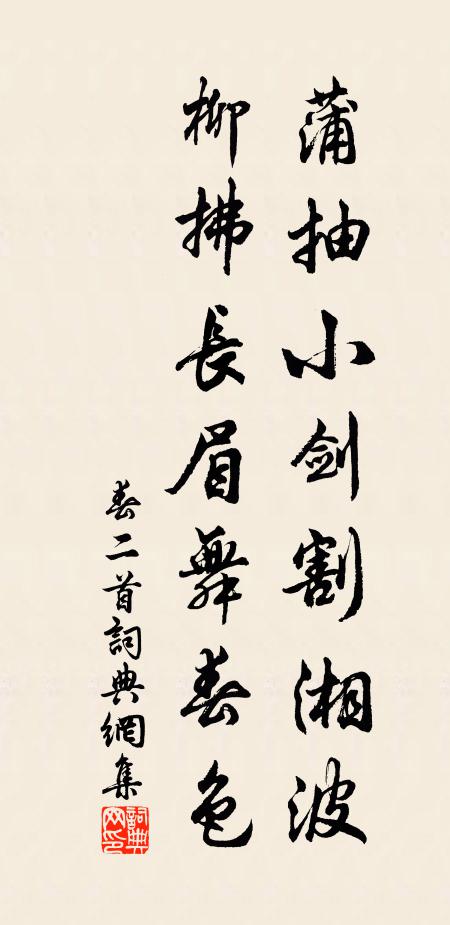 蒲抽小剑割湘波
柳拂長眉舞春色
春二首詞典網集
詞典網印